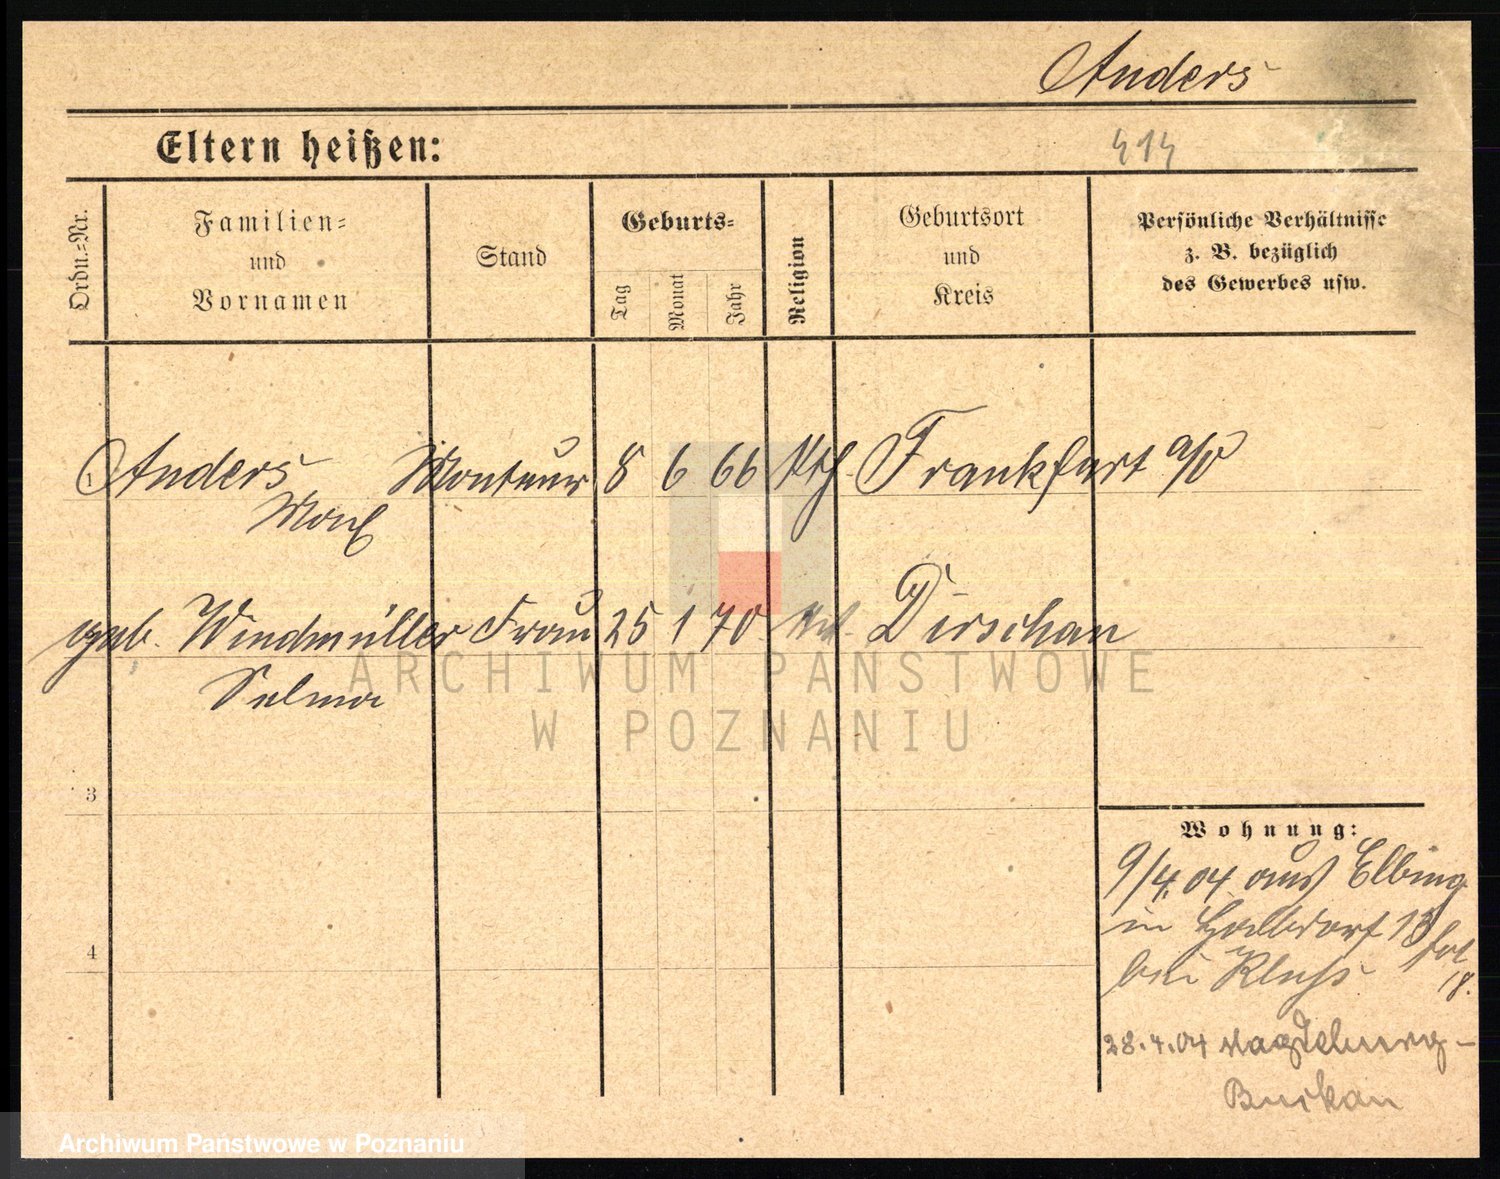 Anders
Eltern heißen:
414
Ordn.=Nr.
Familien=
und
Vornamen
Stand
Geburts=
Tag
Monat
Jahr
Religion
Geburtsort
und
Kreis
Persönliche Verhältnisse
z. B. bezüglich
des Gewerbes usw.
1 Anders Monteur 8 6 66 kth. Frankfurt a/O
Max
geb. Windmüller Frau 25 1 70 Dirschau
Selma
ARCHIWUM PAŃSTWOWE
W POZNANIU
3
Wohnung:
9/4.04 aus Elbing
in Halbdorf 13
bei
18.
4
28.4.04 Magdeburg-
Buckau
Archiwum Państwowe w Poznaniu